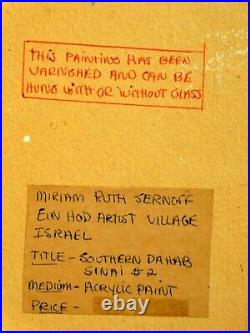 THIS PAINTING HAS BEEN
VARNISHED AND CAN BE
HUNG WITH OR WITHOUT GLASS
MIRIAM RUTH SERNOFF
EIN HOD ARTIST VILLAGE
ISRAEL
TITLE - SOUTHERN DAHAB
SINAI #2
MEDIUM - ACRYLIC PAINT
PRICE -